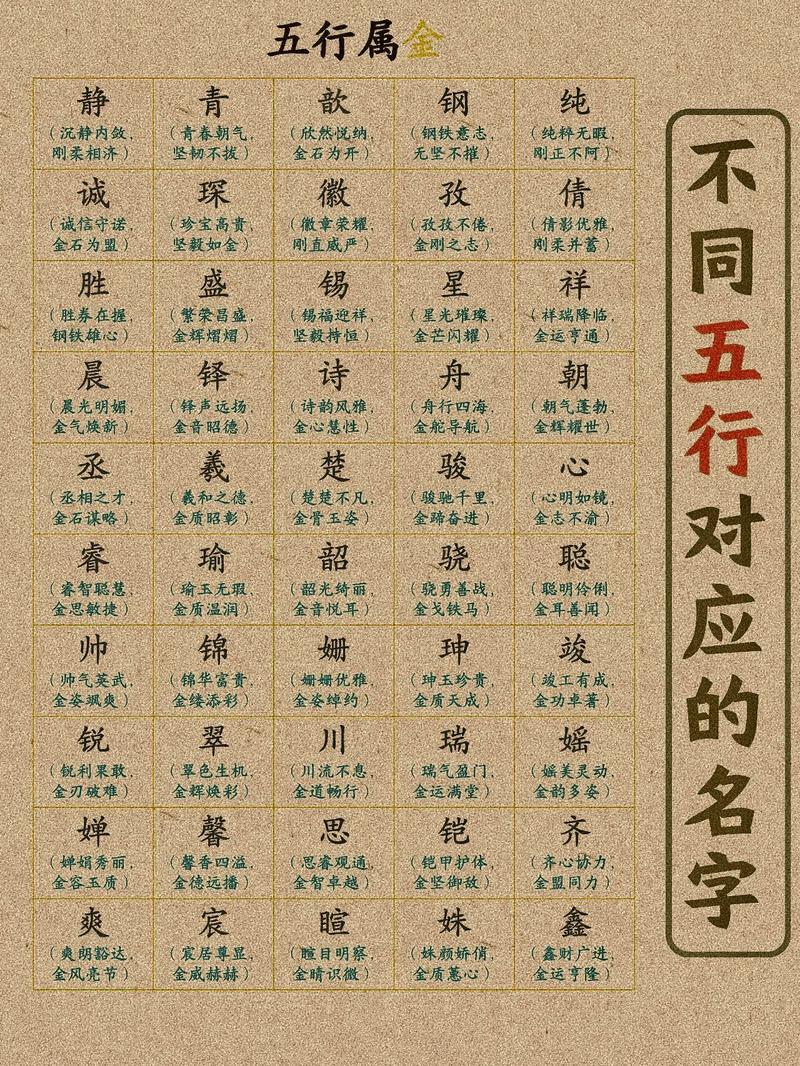 五行属金
静
（沉静内敛，
刚柔相济）
青
（青春朝气，
坚韧不拔）
歆
（欣然悦纳，
金石为开）
钢
（钢铁意志，
无坚不摧）
纯
（纯粹无暇，
刚正不阿）
诚
（诚信守诺，
金石为盟）
琛
（珍宝高贵，
坚毅如金）
徽
（徽章荣耀，
刚直威严）
孜
（孜孜不倦，
金刚之志）
倩
（倩影优雅，
刚柔并蓄）
胜
（胜券在握，
钢铁雄心）
盛
（繁荣昌盛，
金辉熠熠）
锡
（锡福迎祥，
坚毅持恒）
星
（星光璀璨，
金芒闪耀）
祥
（祥瑞降临，
金运亨通）
晨
（晨光明媚，
金气焕新）
铎
（铎声远扬，
金音昭德）
诗
（诗韵风雅，
金心慧性）
舟
（舟行四海，
金舵导航）
朝
（朝气蓬勃，
金辉耀世）
丞
（丞相之才，
金石谋略）
羲
（羲和之德，
金质昭彰）
楚
（楚楚不凡，
金骨玉姿）
骏
（骏驰千里，
金蹄奋进）
心
（心明如镜，
金志不渝）
睿
（睿智聪慧，
金思敏捷）
瑜
（瑜玉无瑕，
金质温润）
韶
（韶光绮丽，
金音悦耳）
骁
（骁勇善战，
金戈铁马）
聪
（聪明伶俐，
金耳善闻）
帅
（帅气英武，
金姿飒爽）
锦
（锦华富贵，
金缕添彩）
姗
（姗姗优雅，
金姿绰约）
珅
（珅玉珍贵，
金质天成）
竣
（竣工有成，
金功卓著）
锐
（锐利果敢，
金刃破难）
翠
（翠色生机，
金辉焕彩）
川
（川流不息，
金道畅行）
瑞
（瑞气盈门，
金运满堂）
媱
（媱美灵动，
金韵多姿）
婵
（婵娟秀丽，
金容玉质）
馨
（馨香四溢，
金德远播）
思
（思睿观通，
金智卓越）
铠
（铠甲护体，
金坚御敌）
齐
（齐心协力，
金盟同力）
爽
（爽朗豁达，
金风亮节）
宸
（宸居尊显，
金威赫赫）
暄
（暄目明察，
金睛识微）
姝
（姝颜娇俏，
金质蕙心）
鑫
（鑫财广进，
金运亨隆）
不同五行对应的名字